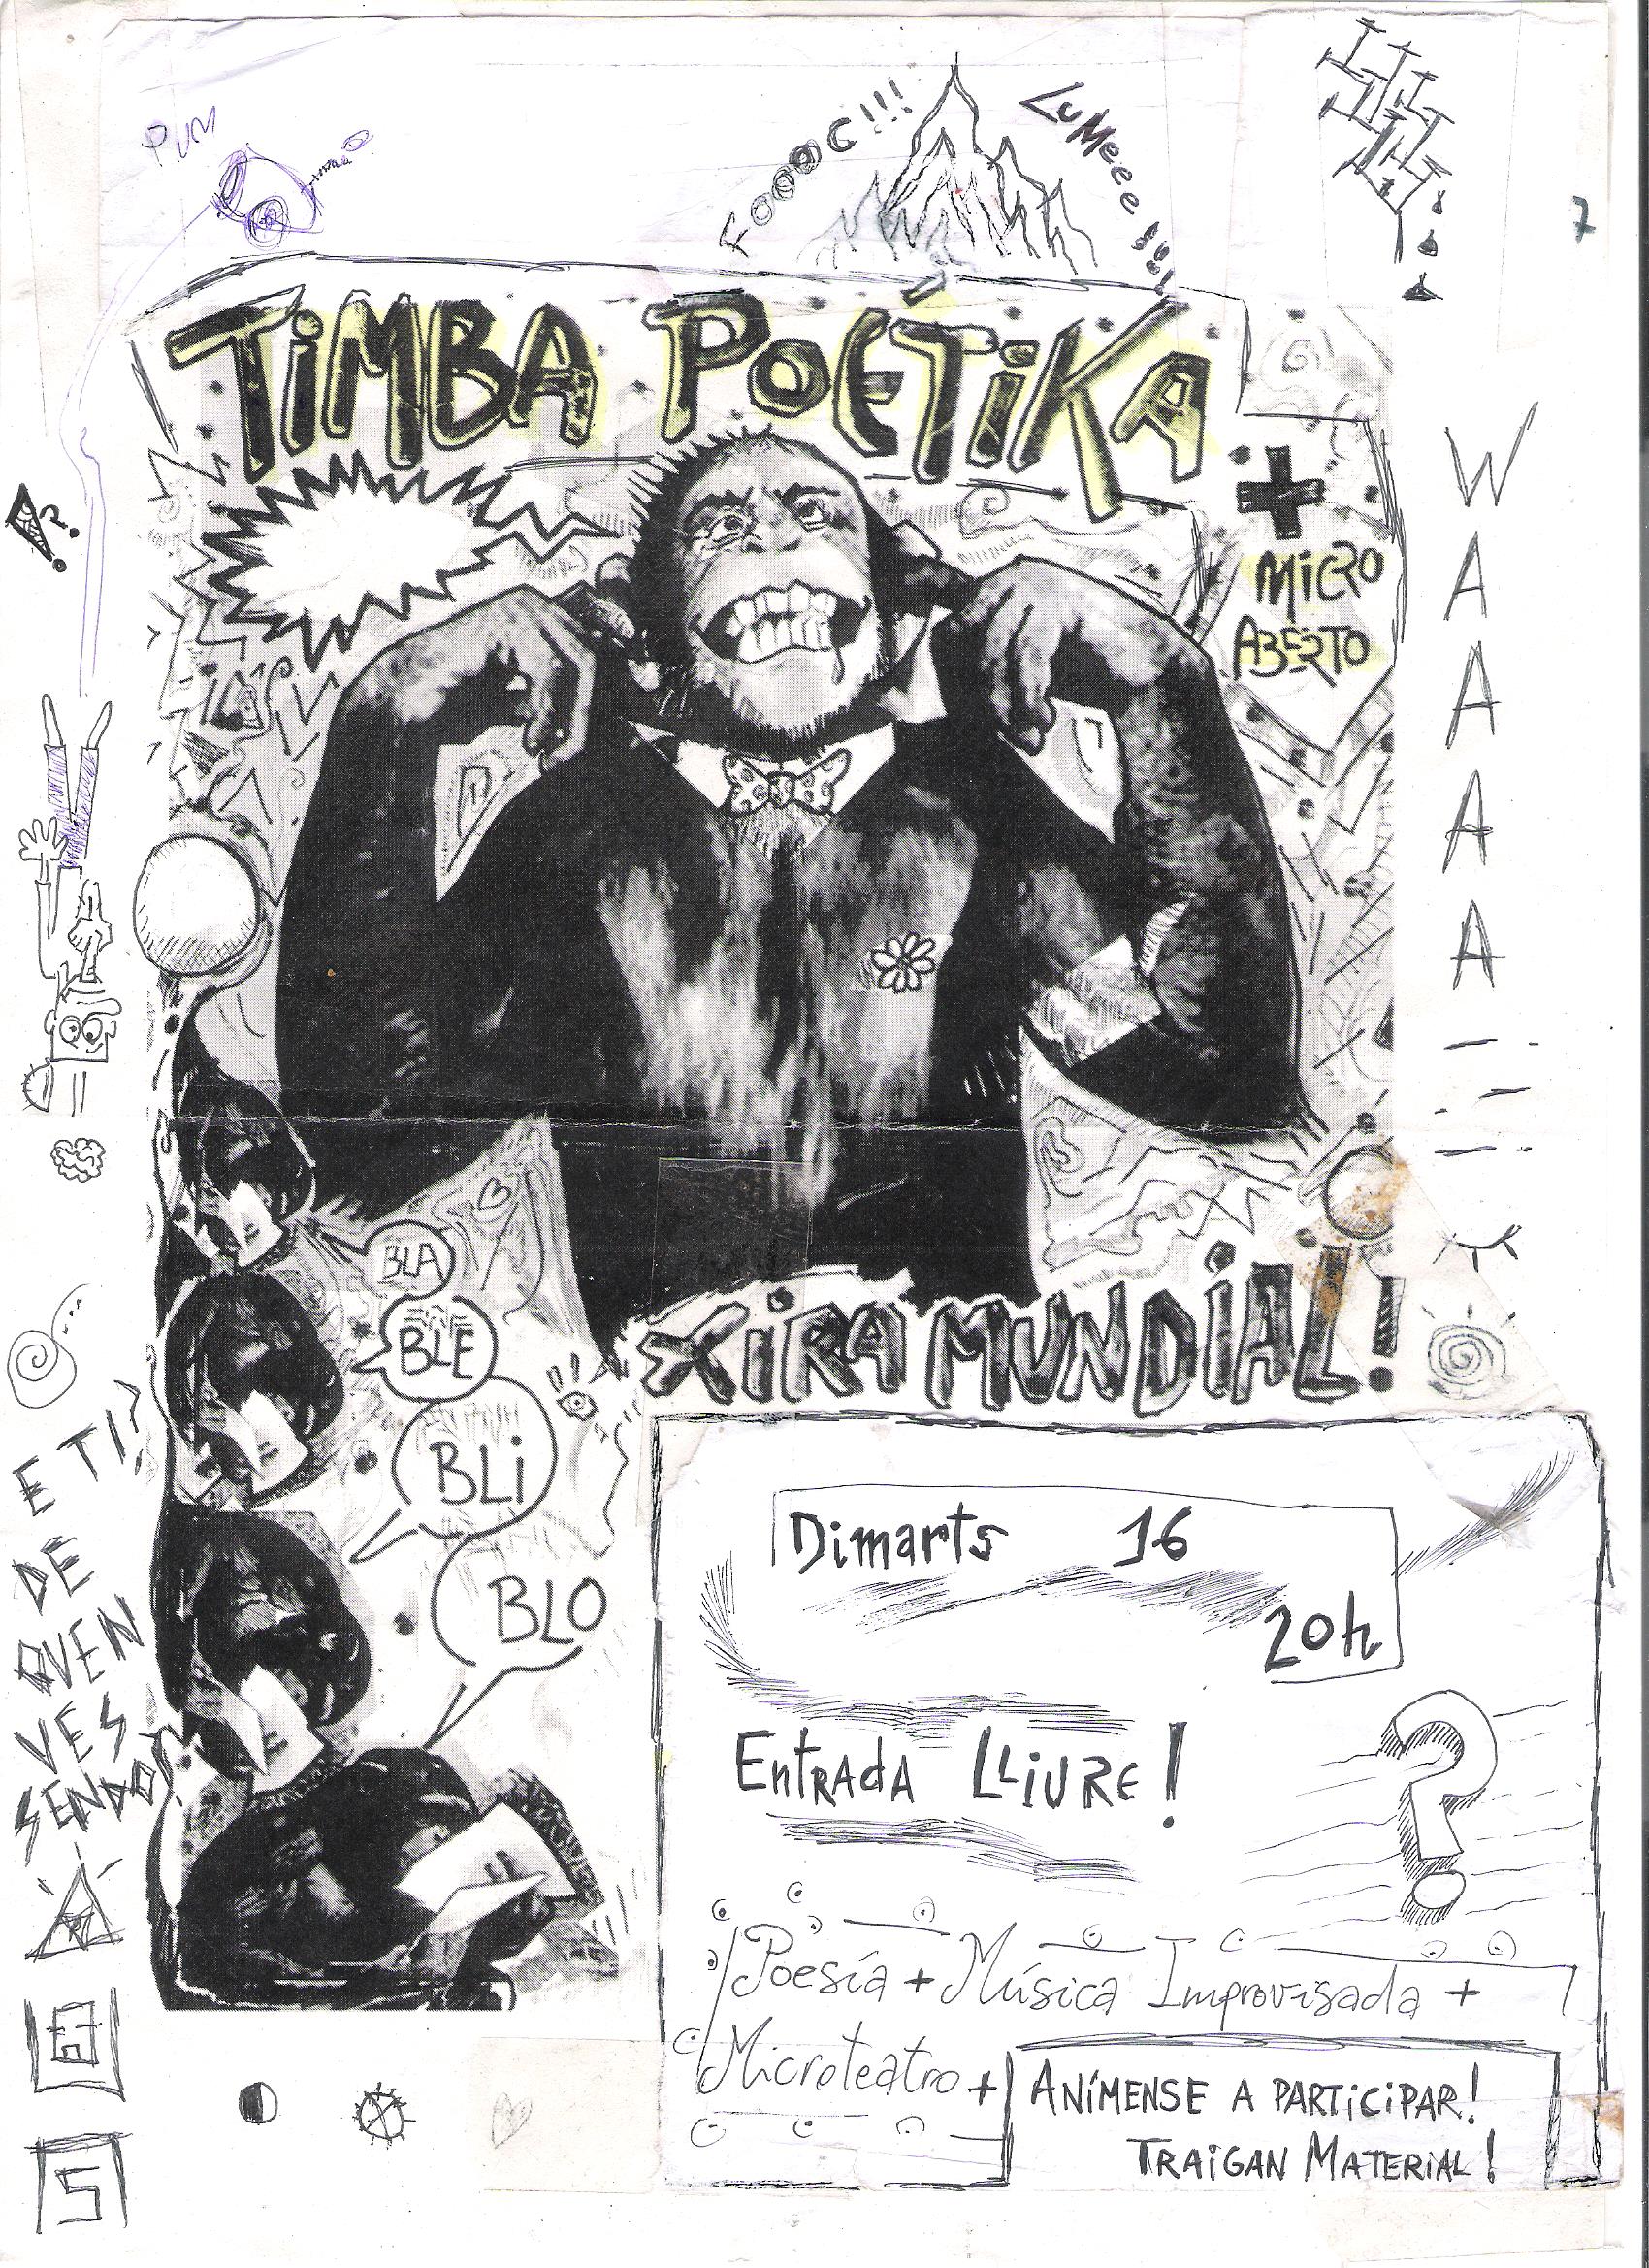 PUM
FOOOC!!!
LUMeee!!!!
7
TiMBA POÉTiKA
+
MiCRO
ABERTO
WAAAAA
?
BLA
BLE
BLi
BLO
XiRA MUNDiAL!
E TI?
DE
QUEN
VES
SENDO!
Dimarts 16
20h
EntRAdA LLiURE!
?
Poesía + Música Improvisada +
Microteatro +
ANÍMENSE A PARTiCiPAR!
TRAiGAN MATERiAL!
S